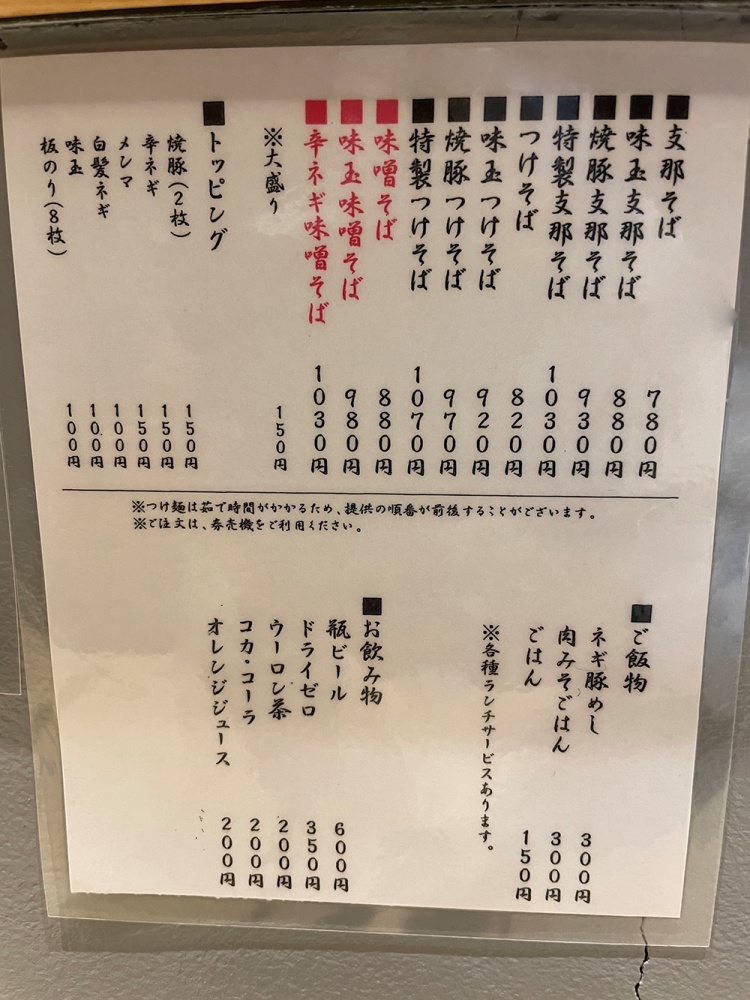 ■支那そば 780円
■味玉支那そば 880円
■焼豚支那そば 930円
■特製支那そば 1030円
■つけそば 820円
■味玉つけそば 920円
■焼豚つけそば 970円
■特製つけそば 1070円
■味噌そば 880円
■味玉味噌そば 980円
■辛ネギ味噌そば 1030円
※大盛り 150円
■トッピング
焼豚(2枚) 150円
辛ネギ 150円
メンマ 150円
白髪ネギ 100円
味玉 100円
板のり(8枚) 100円
※つけ麺は茹で時間がかかるため、提供の順番が前後することがございます。
※ご注文は、券売機をご利用ください。
■ご飯物
ネギ豚めし 300円
肉みそごはん 300円
ごはん 150円
※各種ランチサービスあります。
■お飲み物
瓶ビール 600円
ドライゼロ 350円
ウーロン茶 200円
コカ・コーラ 200円
オレンジジュース 200円